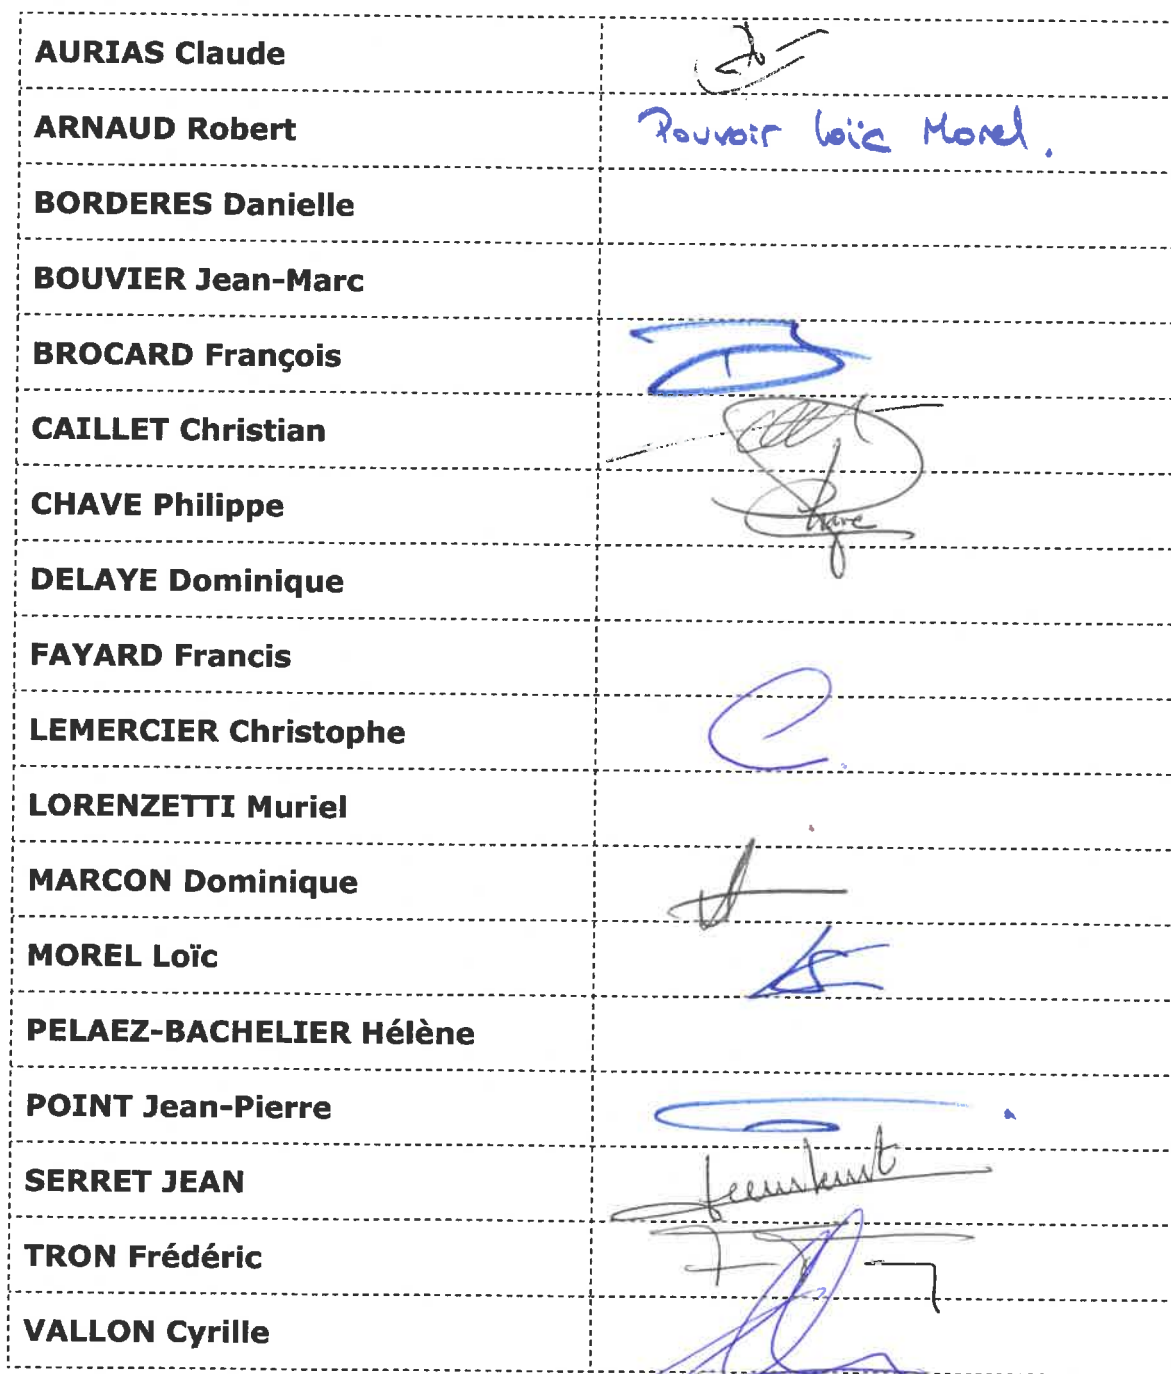 AURIAS Claude
ARNAUD Robert Pouvoir Loïc Morel.
BORDERES Danielle
BOUVIER Jean-Marc
BROCARD François
CAILLET Christian
CHAVE Philippe
DELAYE Dominique
FAYARD Francis
LEMERCIER Christophe
LORENZETTI Muriel
MARCON Dominique
MOREL Loïc
PELAEZ-BACHELIER Hélène
POINT Jean-Pierre
SERRET JEAN
TRON Frédéric
VALLON Cyrille